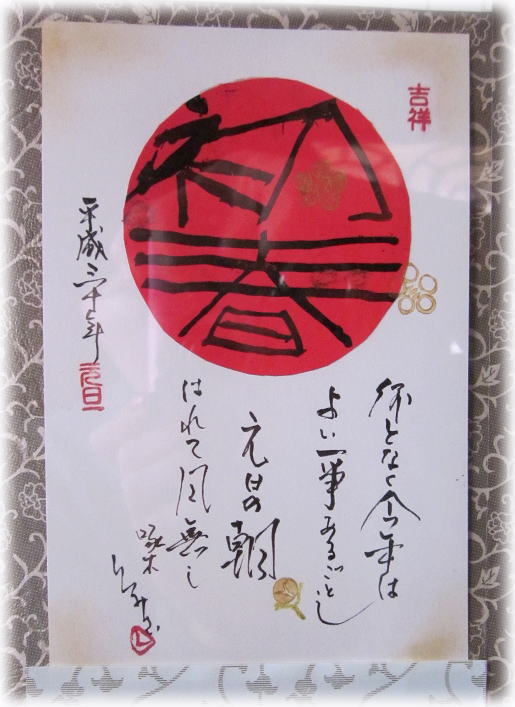 初春
吉祥
何となく今年は
よい事あるごとし
元日の朝
はれて風無し
啄木
平成二十七年 元旦